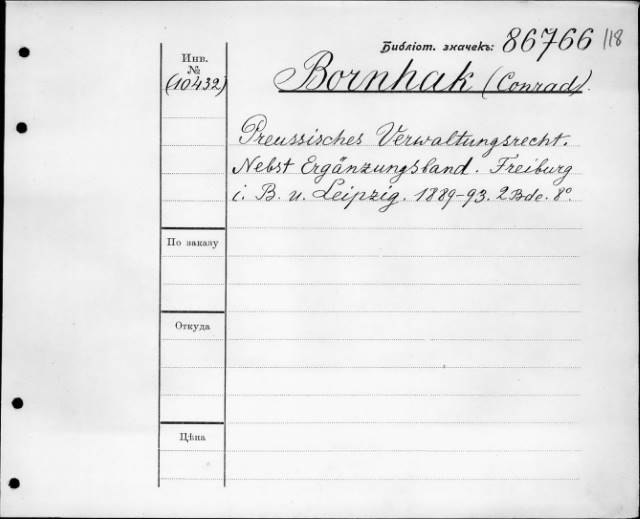 Библіот. значекъ: 86766/18
Инв.
№
(10432)
Bornhak (Conrad).
Preussisches Verwaltungsrecht.
Nebst Ergänzungsband. Freiburg
i. B. u. Leipzig. 1889-93. 2 Bde. 8°.
По заказу
Откуда
Цѣна